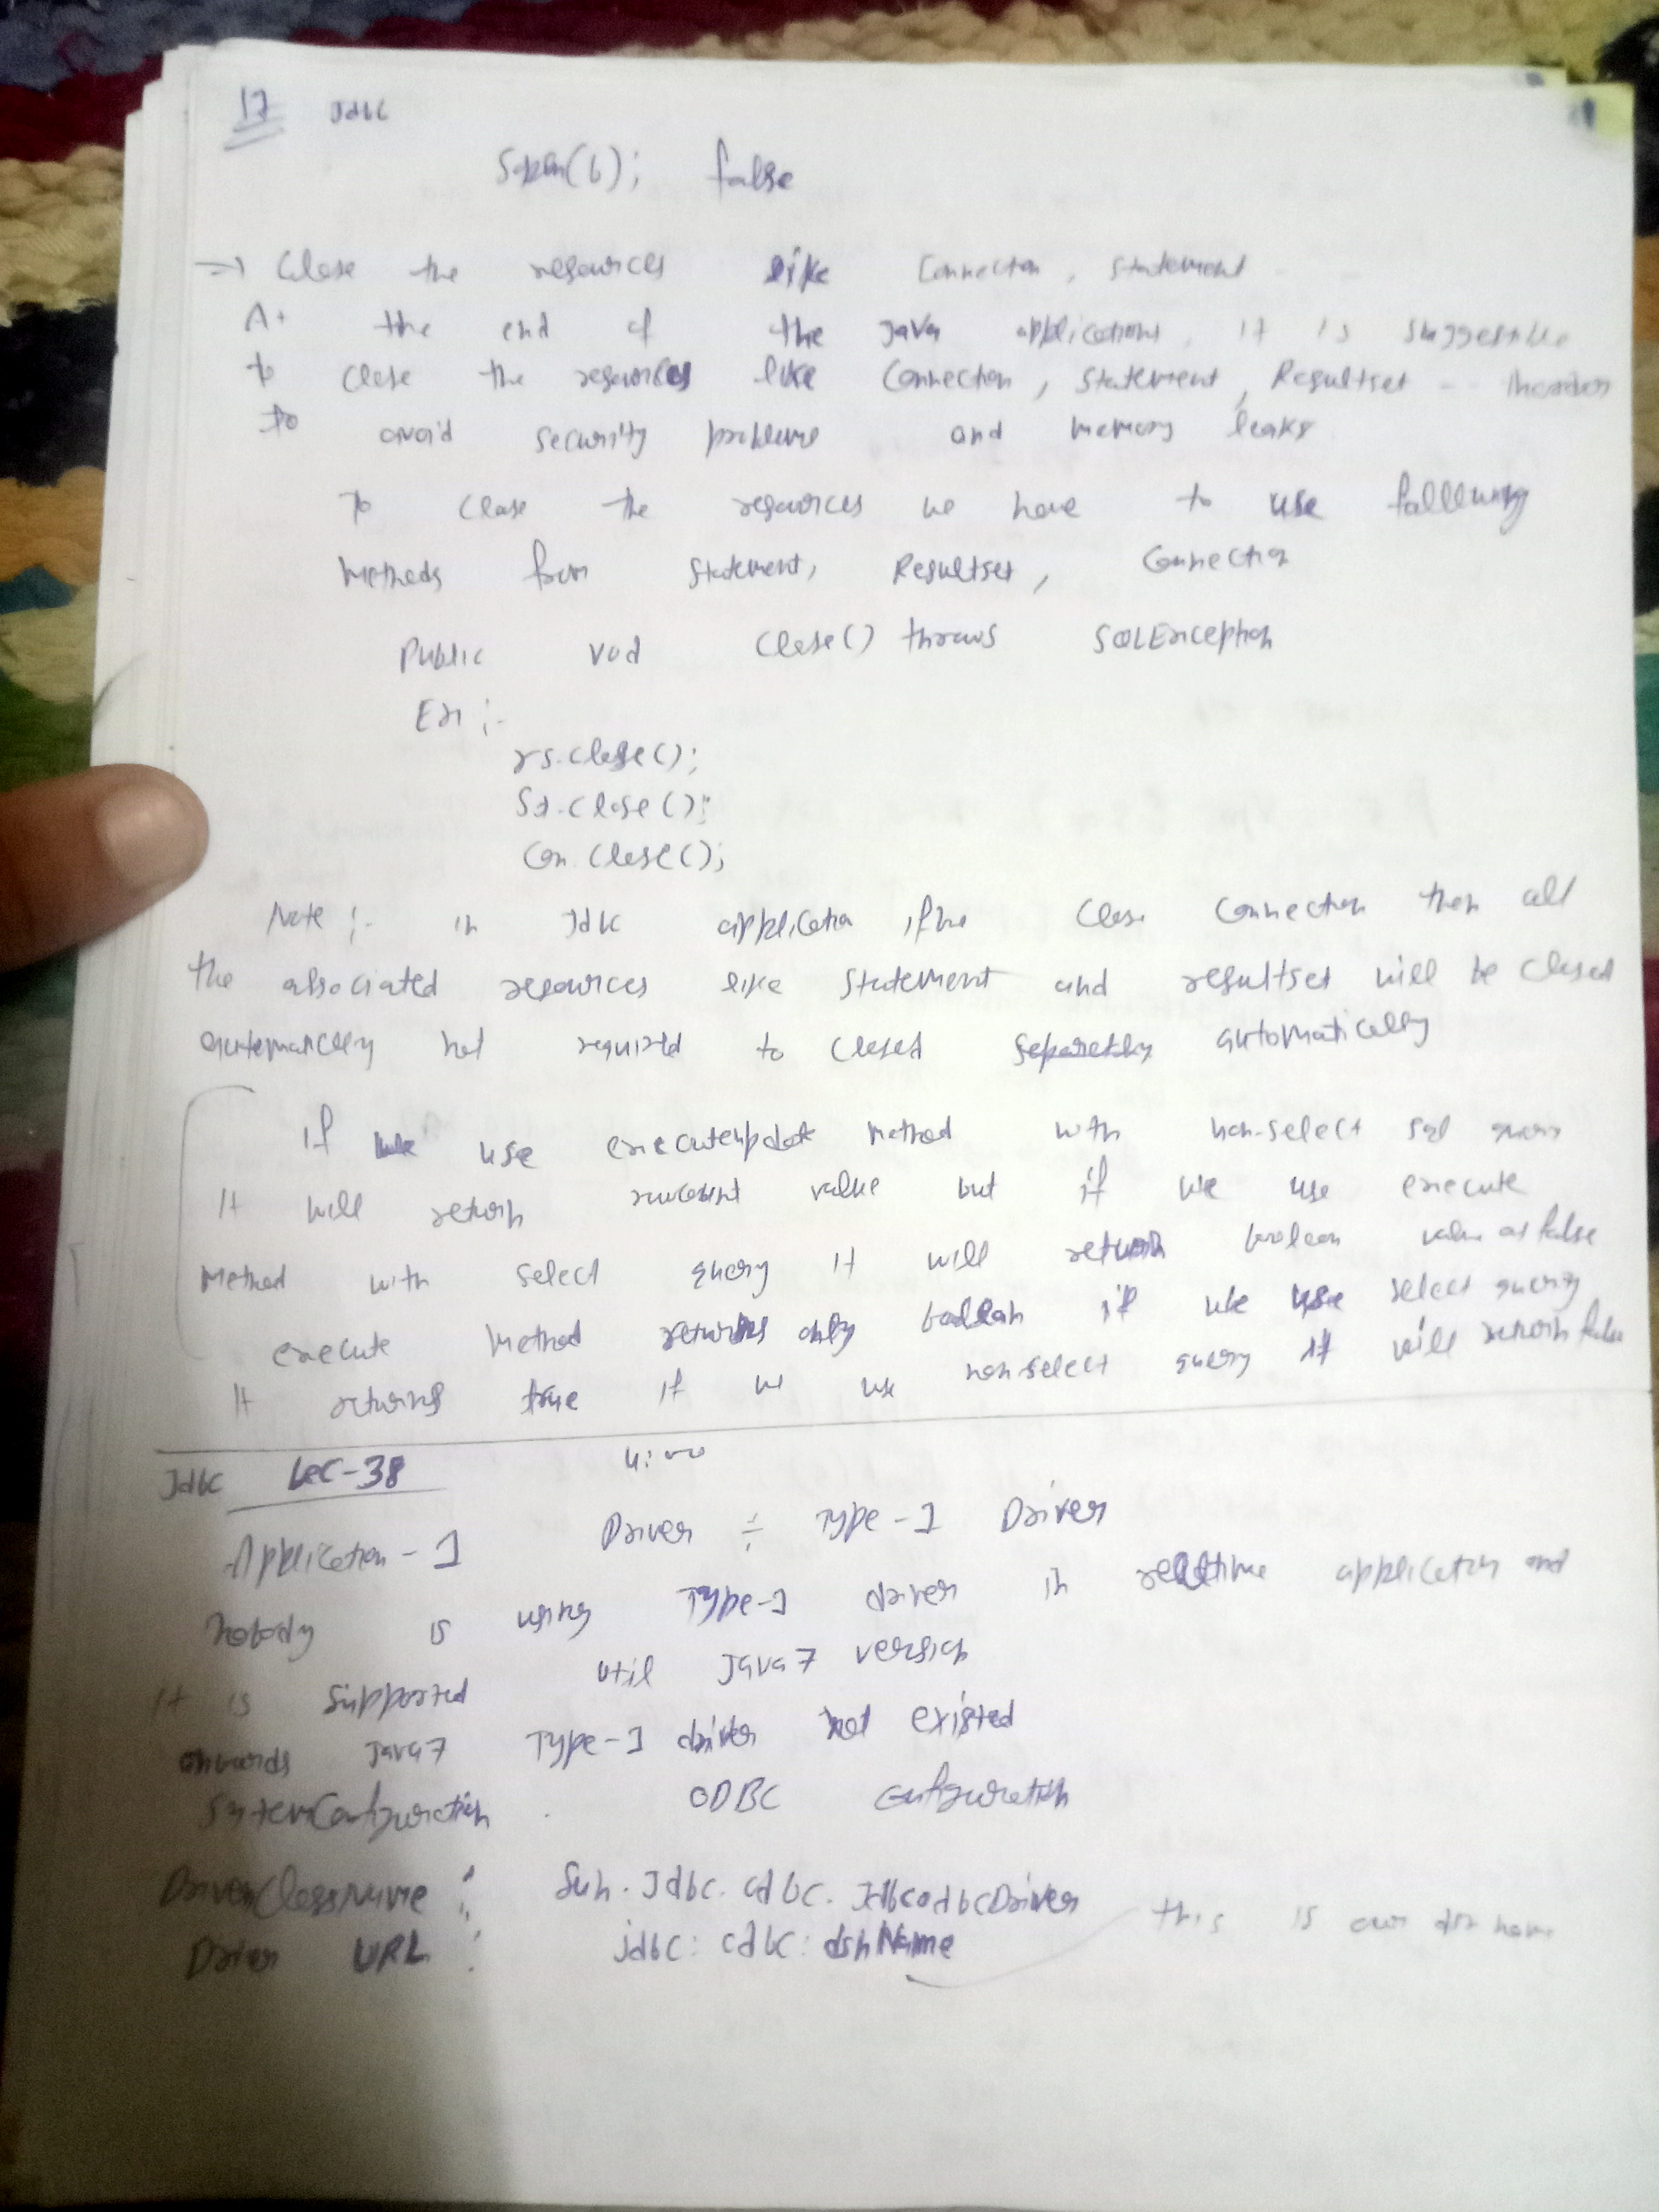 17 Jdbc
Sopln(b); false
=> Close the resources like Connection, Statement
At the end of the Java applications, it is suggestible
to close the resources like Connection, Statement, Resultset --
to avoid security problems and memory leaks
To close the resources we have to use following
methods from Statement, Resultset, Connection
Public void close() throws SQLException
Ex :-
rs.close();
St.close();
Con.close();
Note :- in Jdbc application if we close Connection then all
the associated resources like Statement and resultset will be closed
automatically not required to closed separetely automatically
If we use executeupdate method with non-select sql query
It will return rowcount value but if we use execute
Method with select query it will return boolean value as false
execute method returns only boolean if we use select query
It returns true if we use nonselect query it will return false
Jdbc Lec-38
Application - 1 Driver ÷ Type-1 Driver
Nobody is using Type-1 driver in realtime application and
It is supported util Java7 version
onwards Java7 Type-1 driver not existed
SystemConfiguration . ODBC Configuration
DriverClassName : Sun.Jdbc.odbc.JdbcodbcDriver
Driver URL : jdbc:odbc:dsnName this is our dsn name